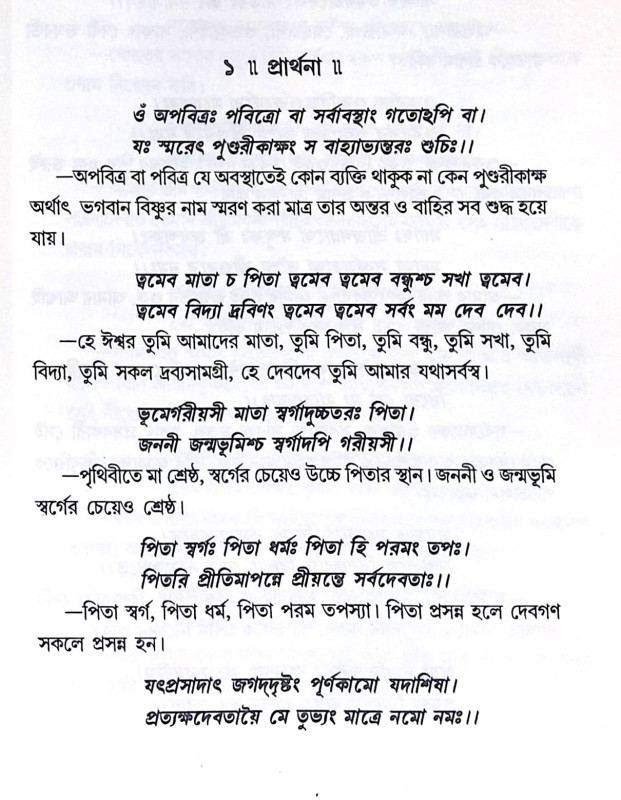 ১ ॥ প্রার্থনা ॥
ওঁ অপবিত্রঃ পবিত্রো বা সর্বাবস্থাং গতোঽপি বা।
যঃ স্মরেৎ পুণ্ডরীকাক্ষং স বাহ্যাভ্যন্তরঃ শুচিঃ।।
—অপবিত্র বা পবিত্র যে অবস্থাতেই কোন ব্যক্তি থাকুক না কেন পুণ্ডরীকাক্ষ
অর্থাৎ ভগবান বিষ্ণুর নাম স্মরণ করা মাত্র তার অন্তর ও বাহির সব শুদ্ধ হয়ে
যায়।
ত্বমেব মাতা চ পিতা ত্বমেব ত্বমেব বন্ধুশ্চ সখা ত্বমেব।
ত্বমেব বিদ্যা দ্রবিণং ত্বমেব ত্বমেব সর্বং মম দেব দেব।।
—হে ঈশ্বর তুমি আমাদের মাতা, তুমি পিতা, তুমি বন্ধু, তুমি সখা, তুমি
বিদ্যা, তুমি সকল দ্রব্যসামগ্রী, হে দেবদেব তুমি আমার যথাসর্বস্ব।
ভূমের্গরীয়সী মাতা স্বর্গাদুচ্চতরঃ পিতা।
জননী জন্মভূমিশ্চ স্বর্গাদপি গরীয়সী।।
—পৃথিবীতে মা শ্রেষ্ঠ, স্বর্গের চেয়েও উচ্চে পিতার স্থান। জননী ও জন্মভূমি
স্বর্গের চেয়েও শ্রেষ্ঠ।
পিতা স্বর্গঃ পিতা ধর্মঃ পিতা হি পরমং তপঃ।
পিতরি প্রীতিমাপন্নে প্রীয়ন্তে সর্বদেবতাঃ।।
—পিতা স্বর্গ, পিতা ধর্ম, পিতা পরম তপস্যা। পিতা প্রসন্ন হলে দেবগণ
সকলে প্রসন্ন হন।
যৎপ্রসাদাৎ জগদ্দৃষ্টং পূর্ণকামো যদাশিষা।
প্রত্যক্ষদেবতায়ৈ মে তুভ্যং মাত্রে নমো নমঃ।।